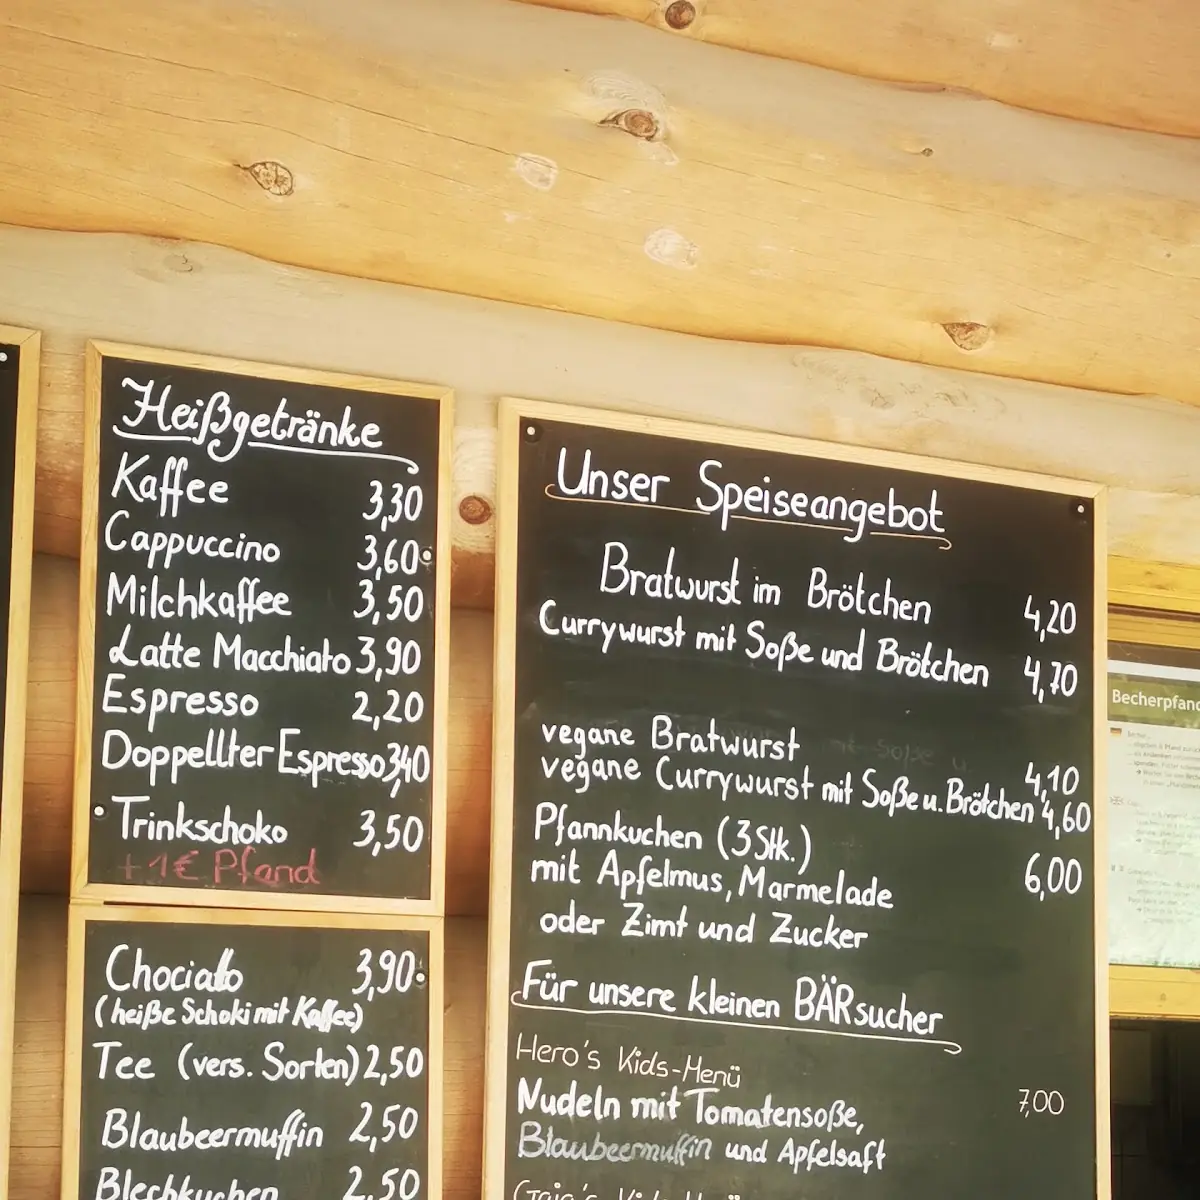 Heißgetränke
Kaffee 3,30
Cappuccino 3,60
Milchkaffee 3,50
Latte Macchiato 3,90
Espresso 2,20
Doppellter Espresso 3,40
Trinkschoko 3,50
+ 1€ Pfand
Chociatto 3,90
(heiße Schoki mit Kaffee)
Tee (vers. Sorten) 2,50
Blaubeermuffin 2,50
Blechkuchen 2,50
Unser Speiseangebot
Bratwurst im Brötchen 4,20
Currywurst mit Soße und Brötchen 4,70
vegane Bratwurst 4,10
vegane Currywurst mit Soße u. Brötchen 4,60
Pfannkuchen (3 Stk.) 6,00
mit Apfelmus, Marmelade
oder Zimt und Zucker
Für unsere kleinen BÄRsucher
Hero's Kids-Menü 7,00
Nudeln mit Tomatensoße,
Blaubeermuffin und Apfelsaft
Becherpfand